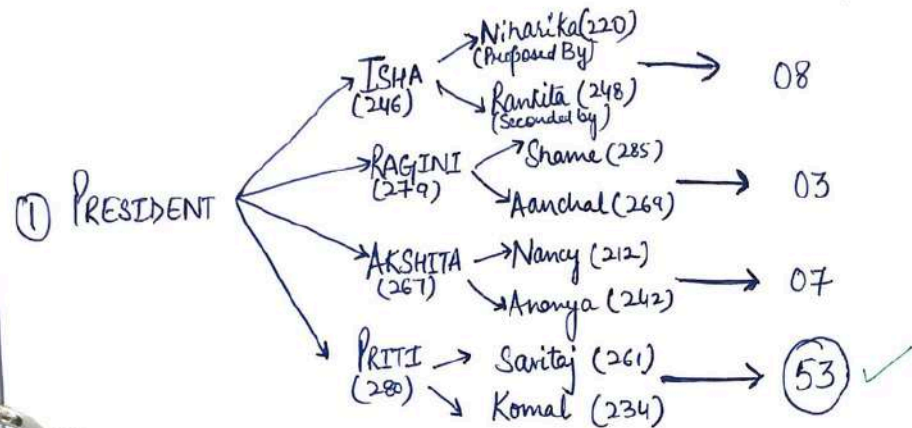 ① PRESIDENT
ISHA (246)
Niharika (220) (Proposed By)
Rankita (248) (Seconded by)
08
RAGINI (279)
Shame (285)
Aanchal (269)
03
AKSHITA (267)
Nancy (212)
Ananya (242)
07
PRITI (280)
Savitaj (261)
Komal (234)
53